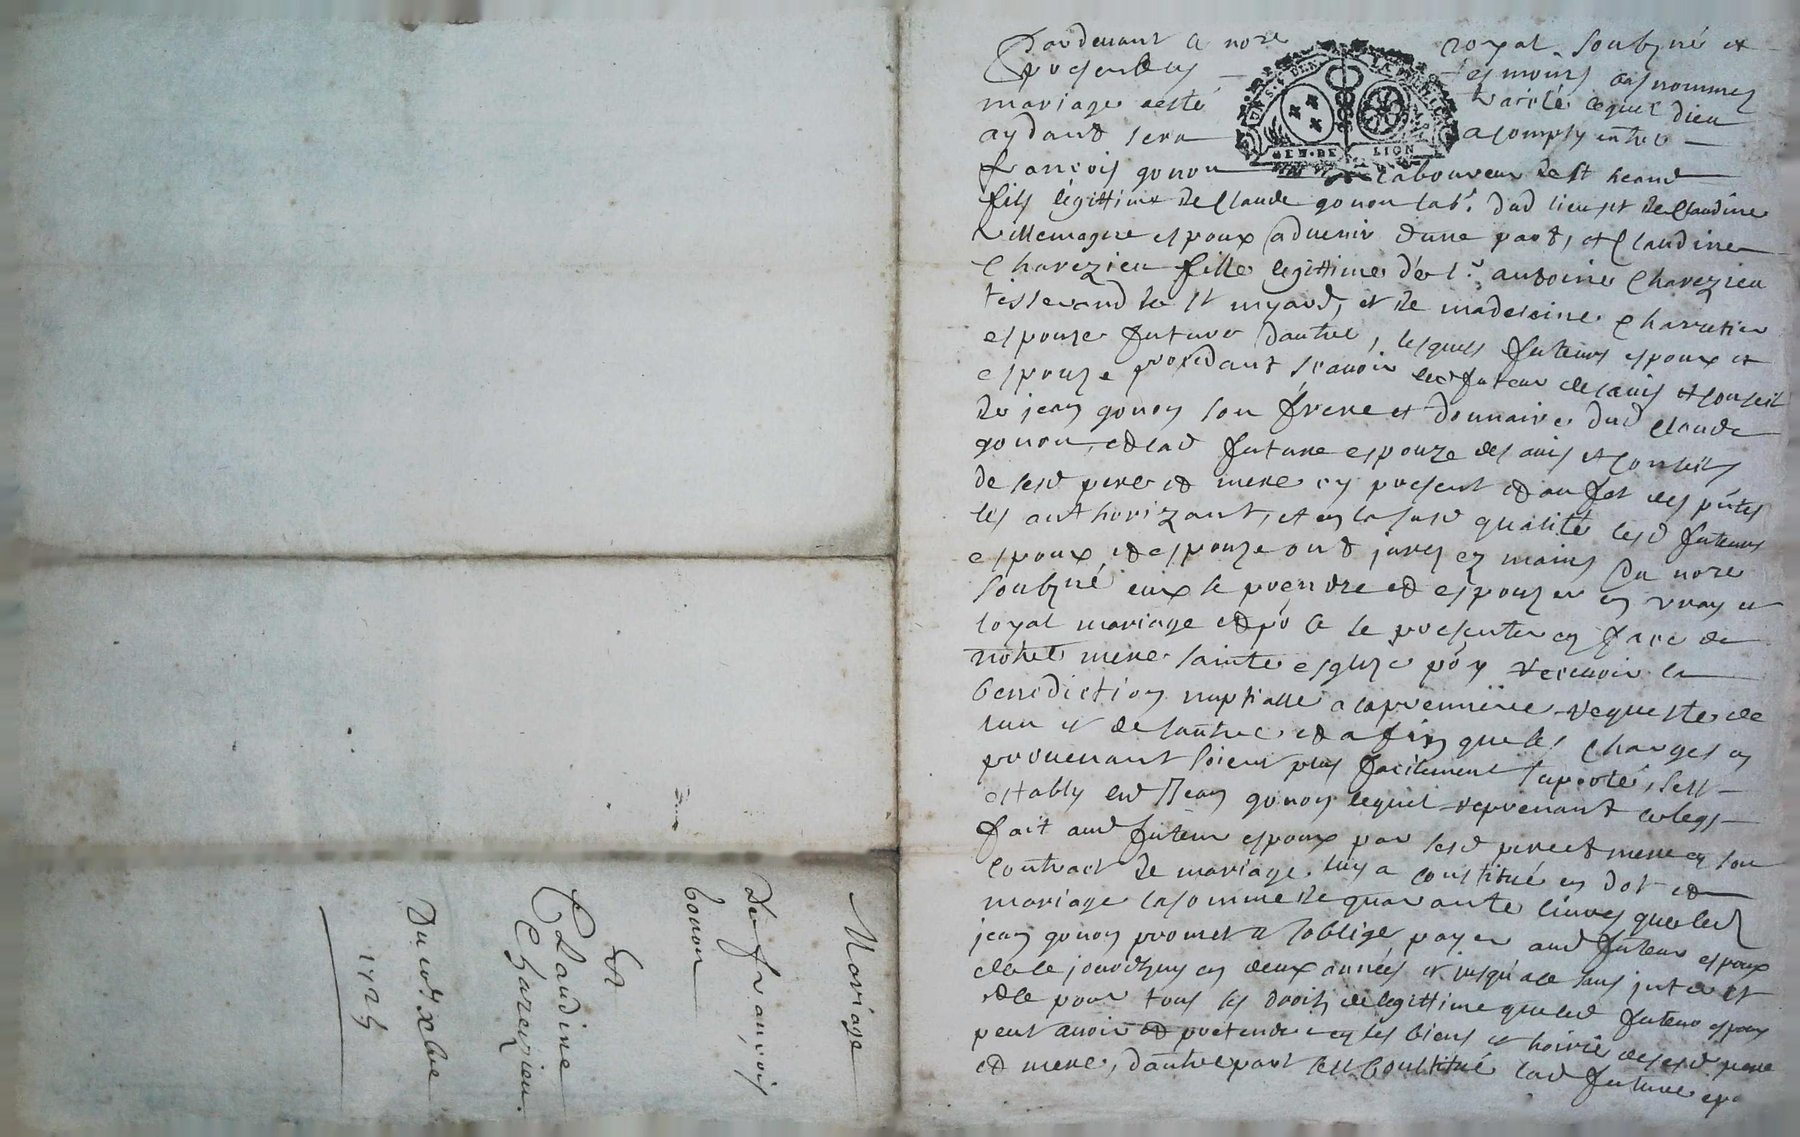 Pardevant le nore royal soubzné et
presents les tesmoins bas nommez
mariage a esté traicté lequel dieu
aydant sera acomply entre
françois gonon laboureur de st heand
fils legittime de Claude gonon labr. dud lieu et de Claudine
villemagne espoux aduenir dune part, et Claudine
Charezieu fille legittime de sr. antoine Charezieu
tisserand de st myard, et de madeleine
espouze future dautre, lesquels futeurs espoux et
espouze procedant scavoir led futeur de lauis et conseil
de jean gonon son frere et donnaire dud Claude
gonon, et lad future espouze des auis et conseils
de sesd pere et mere cy present et au fet des pntes
les authorizant, et en la susd qualité lesd futeurs
espoux et espouze ont jurez es mains du nore
soubzné eux se prendre et espouzer en vray et
loyal mariage et po ce se presenter en face de
notre mere sainte esglize po y recevoir la
benediction nuptialle a la premiere requeste de
lun et de lautre et afin que les charges en
prouenant soient plus facilement suporté, sest
estably led Jean gonon lequel reprenant le legs
fait aud futeur espoux par sesd pere et mere en son
contract de mariage luy a constitué en dot et
mariage la somme de quarante liures que led
jean gonon promet et soblige payer aud futeur espoux
de ce jourdhuy en deux années et jusqu'a ce sans
et ce pour tous les droits de legittime que led futeur espoux
peut avoir et pretendre en les biens et hoirie de sesd pere
et mere, dautre part sest constitué lad future
GEN. DE LION
Mariage
De francois
Gonon
Et
Claudine
Charezieu.
Du xbre